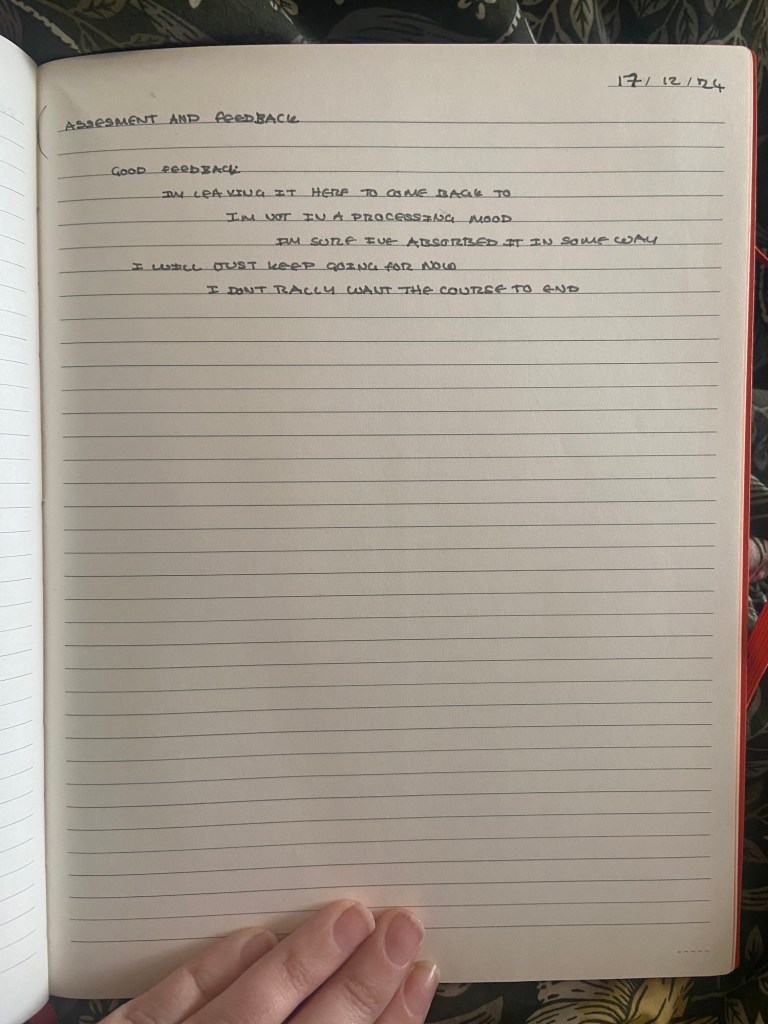 17/12/24
ASSESMENT AND FEEDBACK
GOOD FEEDBACK
IM LEAVING IT HERE TO COME BACK TO
I'M NOT IN A PROCESSING MOOD
IM SURE IVE ABSORBED IT IN SOME WAY
I WILL JUST KEEP GOING FOR NOW
I DONT RALLY WANT THE COURSE TO END